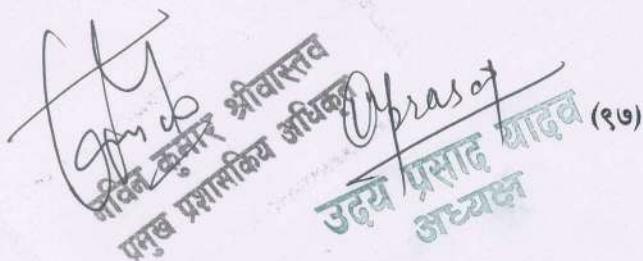 नविन कुमार श्रीवास्तव
प्रमुख प्रशासकिय अधिकृत
Uprasad
उदय प्रसाद यादव
अध्यक्ष
(९७)